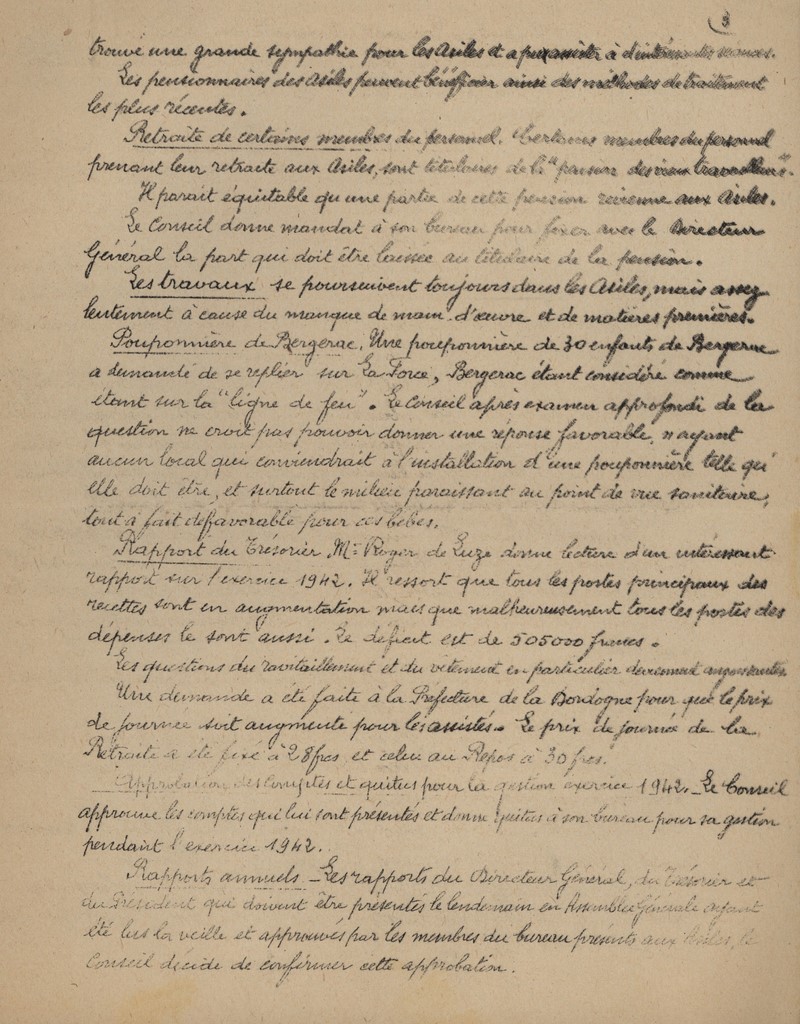 3
trouvé une grande sympathie pour les Asiles et a pu assister à d'intéressantes séances.
Les pensionnaires des Asiles peuvent bénéficier ainsi des méthodes de traitement
les plus récentes.
Retraite de certains membres du personnel. Certains membres du personnel
prenant leur retraite aux Asiles, sont titulaires de la "pension des vieux travailleurs".
Il parait équitable qu'une partie de cette pension revienne aux Asiles.
Le Conseil donne mandat à son bureau pour fixer avec le Directeur
Général la part qui doit être laissée au titulaire de la pension.
Les travaux se poursuivent toujours dans les Asiles, mais assez
lentement à cause du manque de main d'œuvre et de matières premières.
Pouponnière de Bergerac. Une pouponnière de 30 enfants de Bergerac
a demandé de se replier sur La Force, Bergerac étant considéré comme
étant sur la "ligne de feu". Le Conseil après examen approfondi de la
question ne croit pas pouvoir donner une réponse favorable, n'ayant
aucun local qui conviendrait à l'installation d'une pouponnière telle qu'
elle doit être, et surtout le milieu paraissant au point de vue sanitaire,
tout à fait défavorable pour ces bébés.
Rapport du Trésorier. Mr. Roger de Luze donne lecture d'un intéressant
rapport sur l'exercice 1942. Il ressort que tous les postes principaux des
recettes sont en augmentation mais que malheureusement tous les postes des
dépenses le sont aussi. Le déficit est de 505000 francs.
Les questions du ravitaillement et du vêtement en particulier deviennent angoissantes.
Une demande a été faite à la Préfecture de la Dordogne pour que le prix
de journée soit augmenté pour les assistés. Le prix de journée de la
Retraite a été fixé à 28 frcs et celui du Repos à 30 frcs.
Approbation des Comptes et quitus pour la gestion exercice 1942. Le Conseil
approuve les comptes qui lui sont présentés et donne quitus à son bureau pour sa gestion
pendant l'exercice 1942.
Rapports annuels. Les rapports du Directeur Général, du Trésorier et
du Président qui doivent être présentés le lendemain en Assemblée Générale ayant
été lus la veille et approuvés par les membres du bureau présents aux Asiles, le
Conseil décide de confirmer cette approbation.